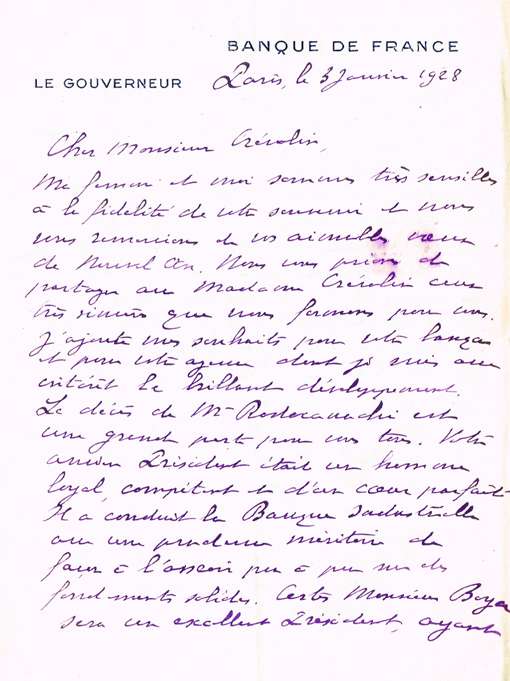 BANQUE DE FRANCE
LE GOUVERNEUR
Paris, le 3 Janvier 1928
Cher Monsieur
Ma femme et moi sommes très sensibles
à la fidélité de votre souvenir et nous
vous remercions de vos aimables vœux
de Nouvel An. Nous vous prions de
partager avec Madame ceux
très sincères que nous formons pour vous.
J'ajoute mes souhaits pour votre banque
et pour votre agence dont je suis avec
intérêt le brillant développement.
Le décès de Mr Rodocanachi est
une grande perte pour vous tous. Votre
ancien Président était un homme
loyal, compétent et d'un cœur parfait.
Il a conduit la Banque Industrielle
avec une prudence méritoire de
façon à l'asseoir peu à peu sur des
fondements solides. Certes Monsieur Boyer
sera un excellent Président, ayant